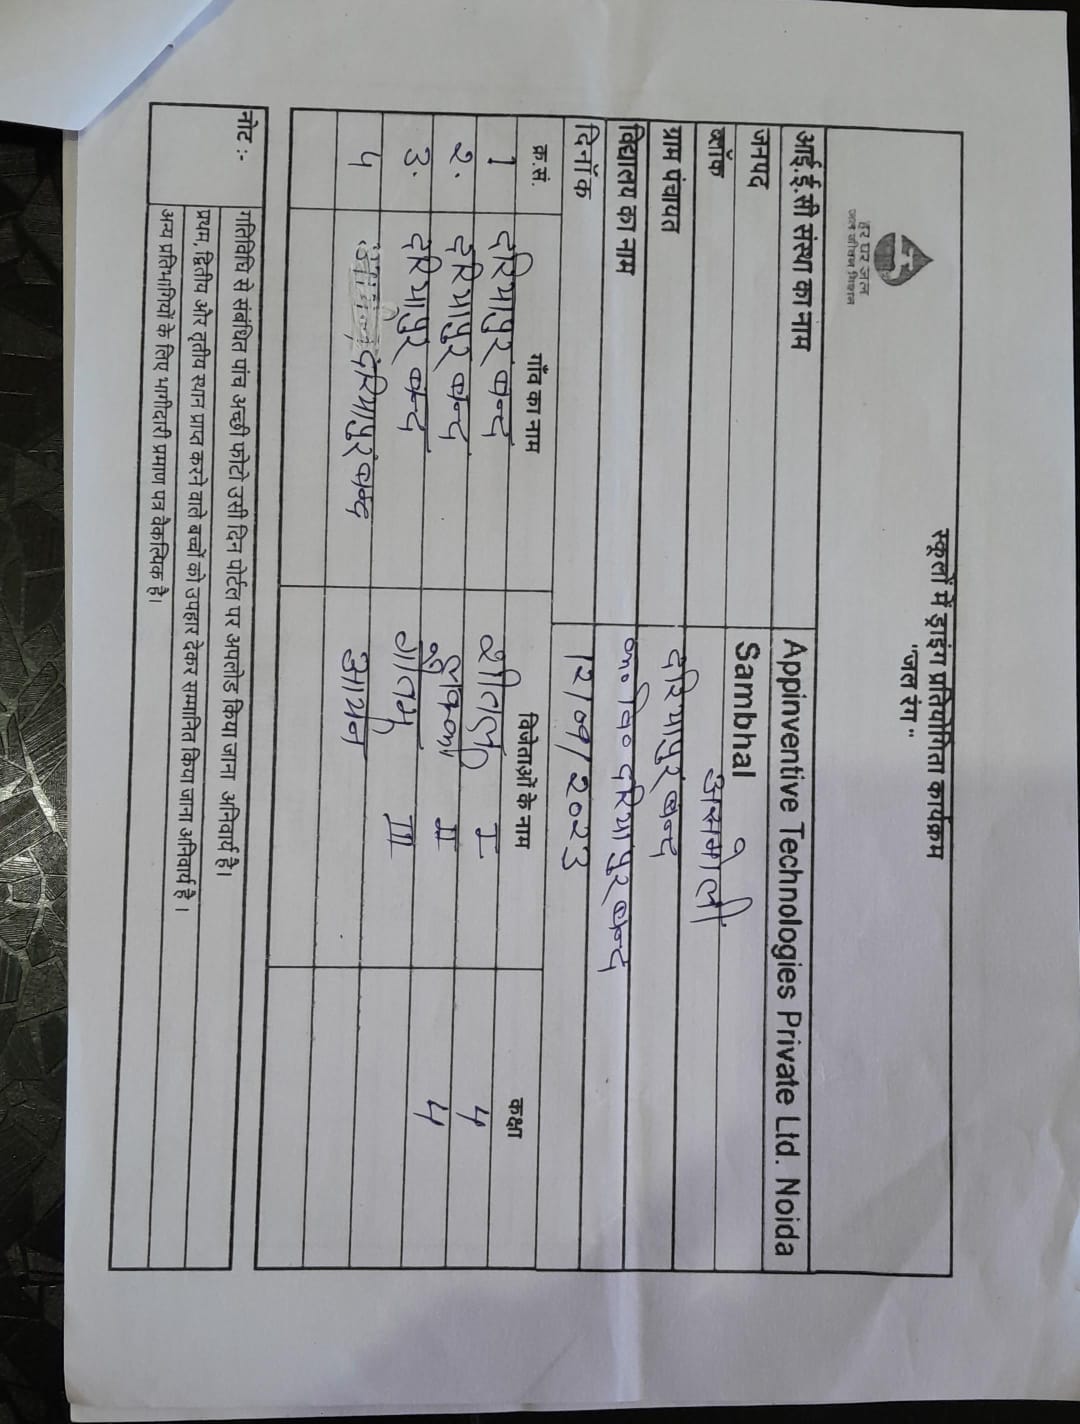 स्कूलों में ड्राइंग प्रतियोगिता कार्यक्रम
"जल रंग"
हर घर जल
जल जीवन मिशन
आई.ई.सी संस्था का नाम Appinventive Technologies Private Ltd. Noida
जनपद Sambhal
ब्लॉक असमोली
ग्राम पंचायत दरियापुर बन्द
विद्यालय का नाम प्रा० वि० दरियापुर बन्द
दिनाँक 12/09/2023
क्र.सं. गाँव का नाम विजेताओं के नाम कक्षा
1 दरियापुर बन्द शीतल I 4
2. दरियापुर बन्द II 4
3. दरियापुर बन्द गौतम III
4 दरियापुर बन्द आयन
नोट :- गतिविधि से संबंधित पांच अच्छी फोटो उसी दिन पोर्टल पर अपलोड किया जाना अनिवार्य है।
प्रथम, द्वितीय और तृतीय स्थान प्राप्त करने वाले बच्चों को उपहार देकर सम्मानित किया जाना अनिवार्य है ।
अन्य प्रतिभागियों के लिए भागीदारी प्रमाण पत्र वैकल्पिक है।